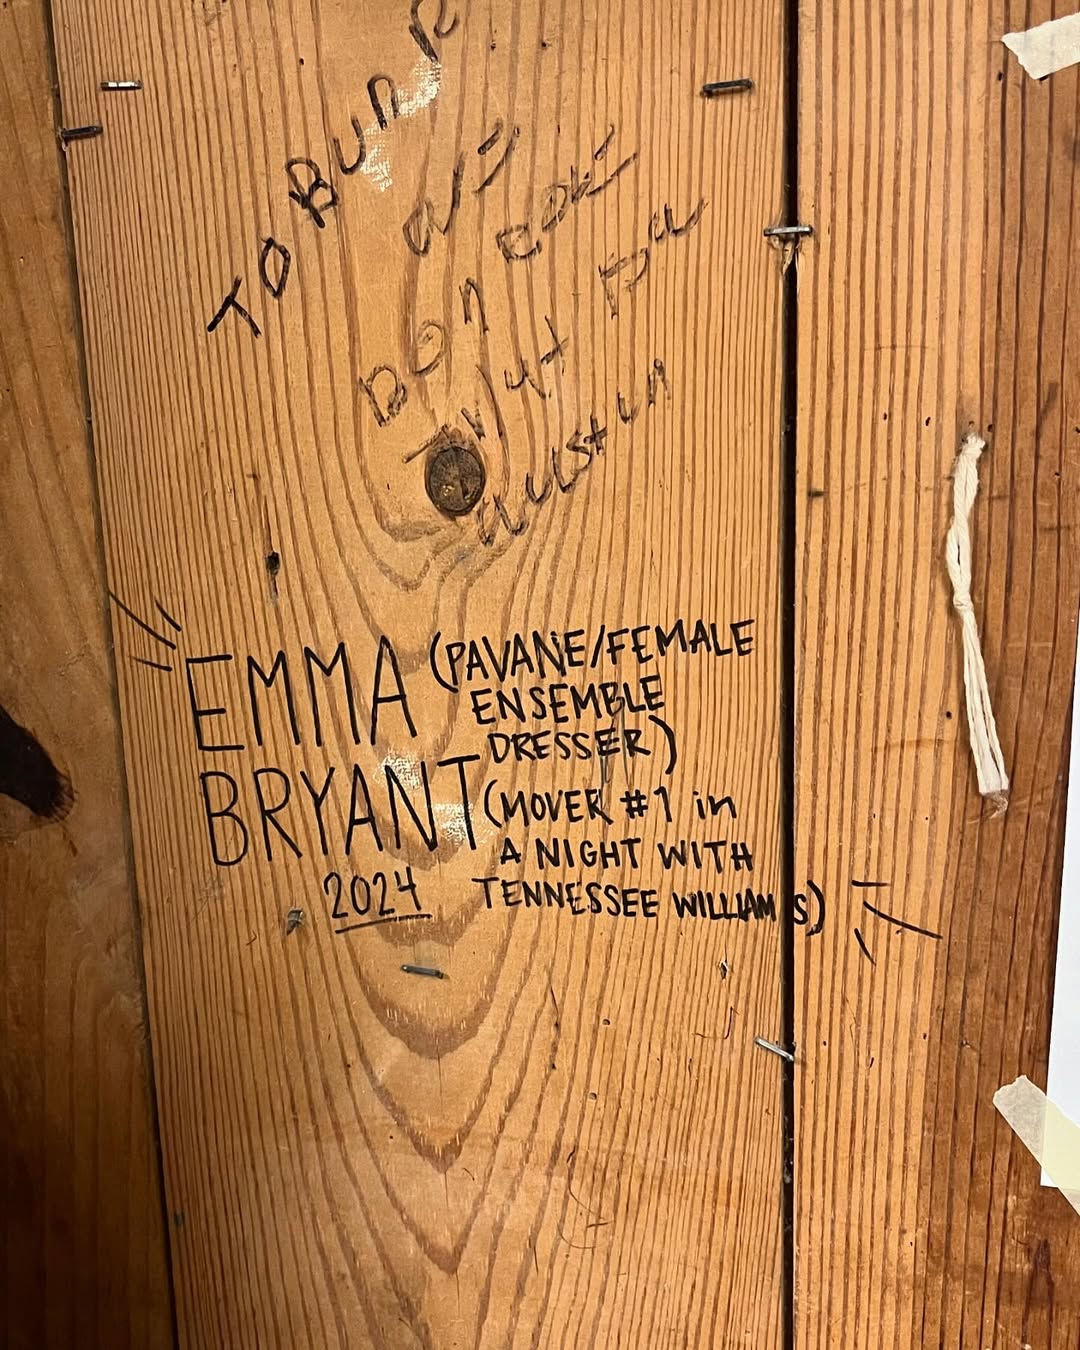 TO BURR
DON
austin
EMMA (PAVANE/FEMALE
ENSEMBLE
DRESSER)
BRYANT (MOVER #1 in
A NIGHT WITH
2024 TENNESSEE WILLIAMS)